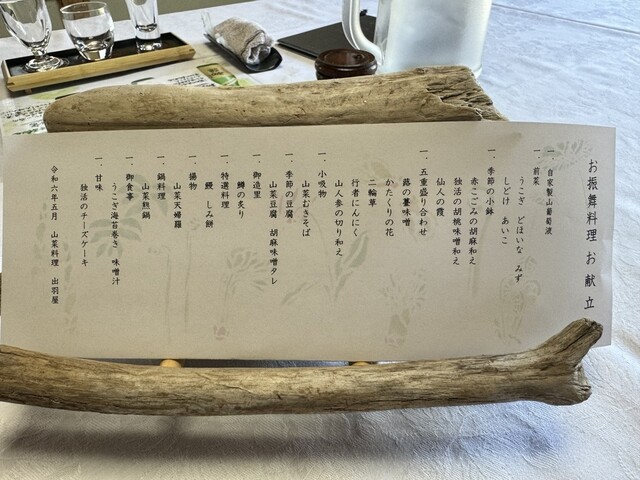 お振舞料理 お献立
一. 自家製山葡萄液
一. 前菜
うこぎ どほいな みず
しどけ あいこ
一. 季節の小鉢
赤こごみの胡麻和え
独活の胡桃味噌和え
仙人の霞
一. 五重盛り合わせ
蕗の薹味噌
かたくりの花
二輪草
行者にんにく
山人参の切り和え
一. 小吸物
山菜むきそば
一. 季節の豆腐
山菜豆腐 胡麻味噌タレ
一. 御造里
鱒の炙り
一. 特選料理
鰻 しみ餅
一. 揚物
山菜天婦羅
一. 鍋料理
山菜熊鍋
一. 御食事
うこぎ海苔巻き 味噌汁
一. 甘味
独活のチーズケーキ
令和六年五月 山菜料理 出羽屋